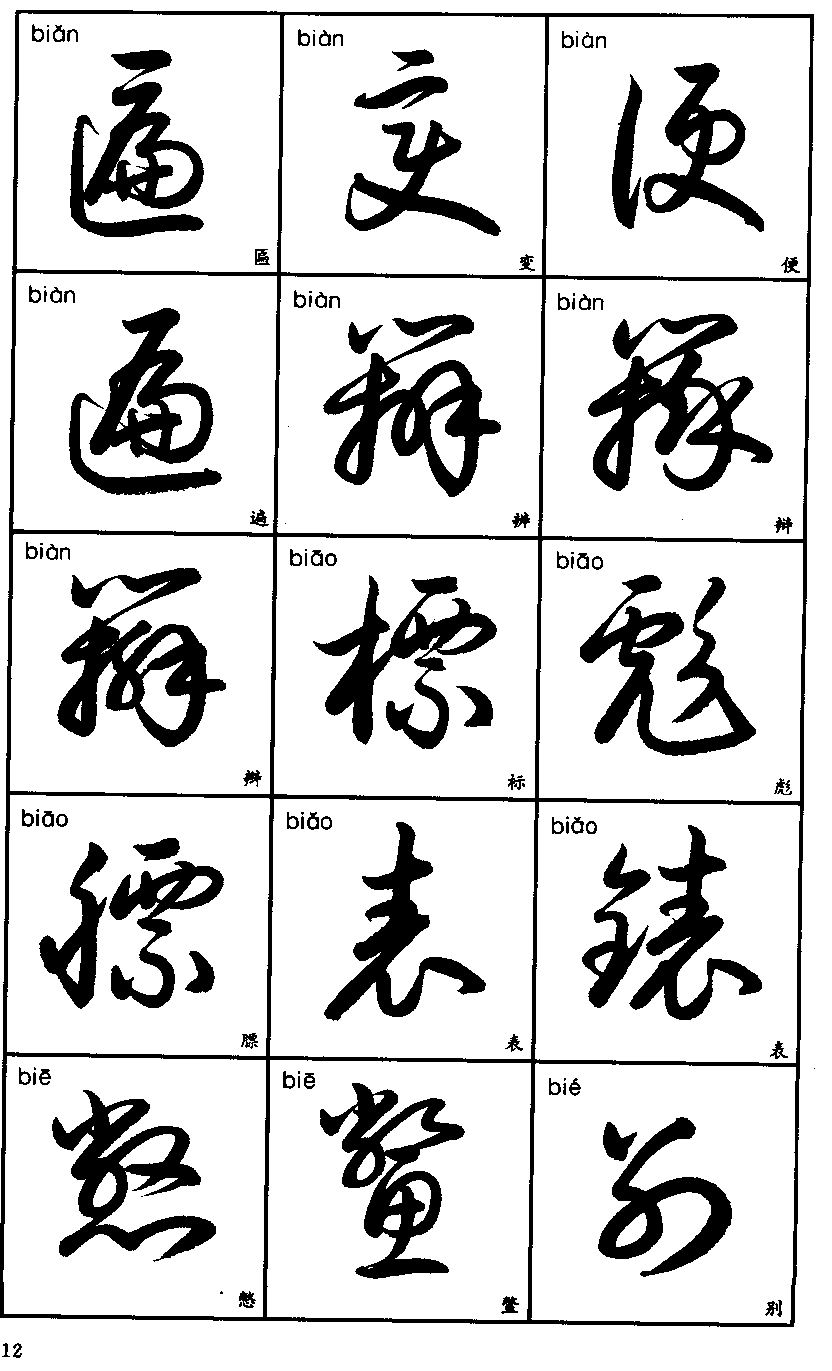 biǎn
匾
biàn
变
biàn
便
biàn
遍
biàn
辨
biàn
辩
biàn
辫
biāo
标
biāo
彪
biāo
膘
biǎo
表
biǎo
表
biē
憋
biē
鳖
bié
别
12